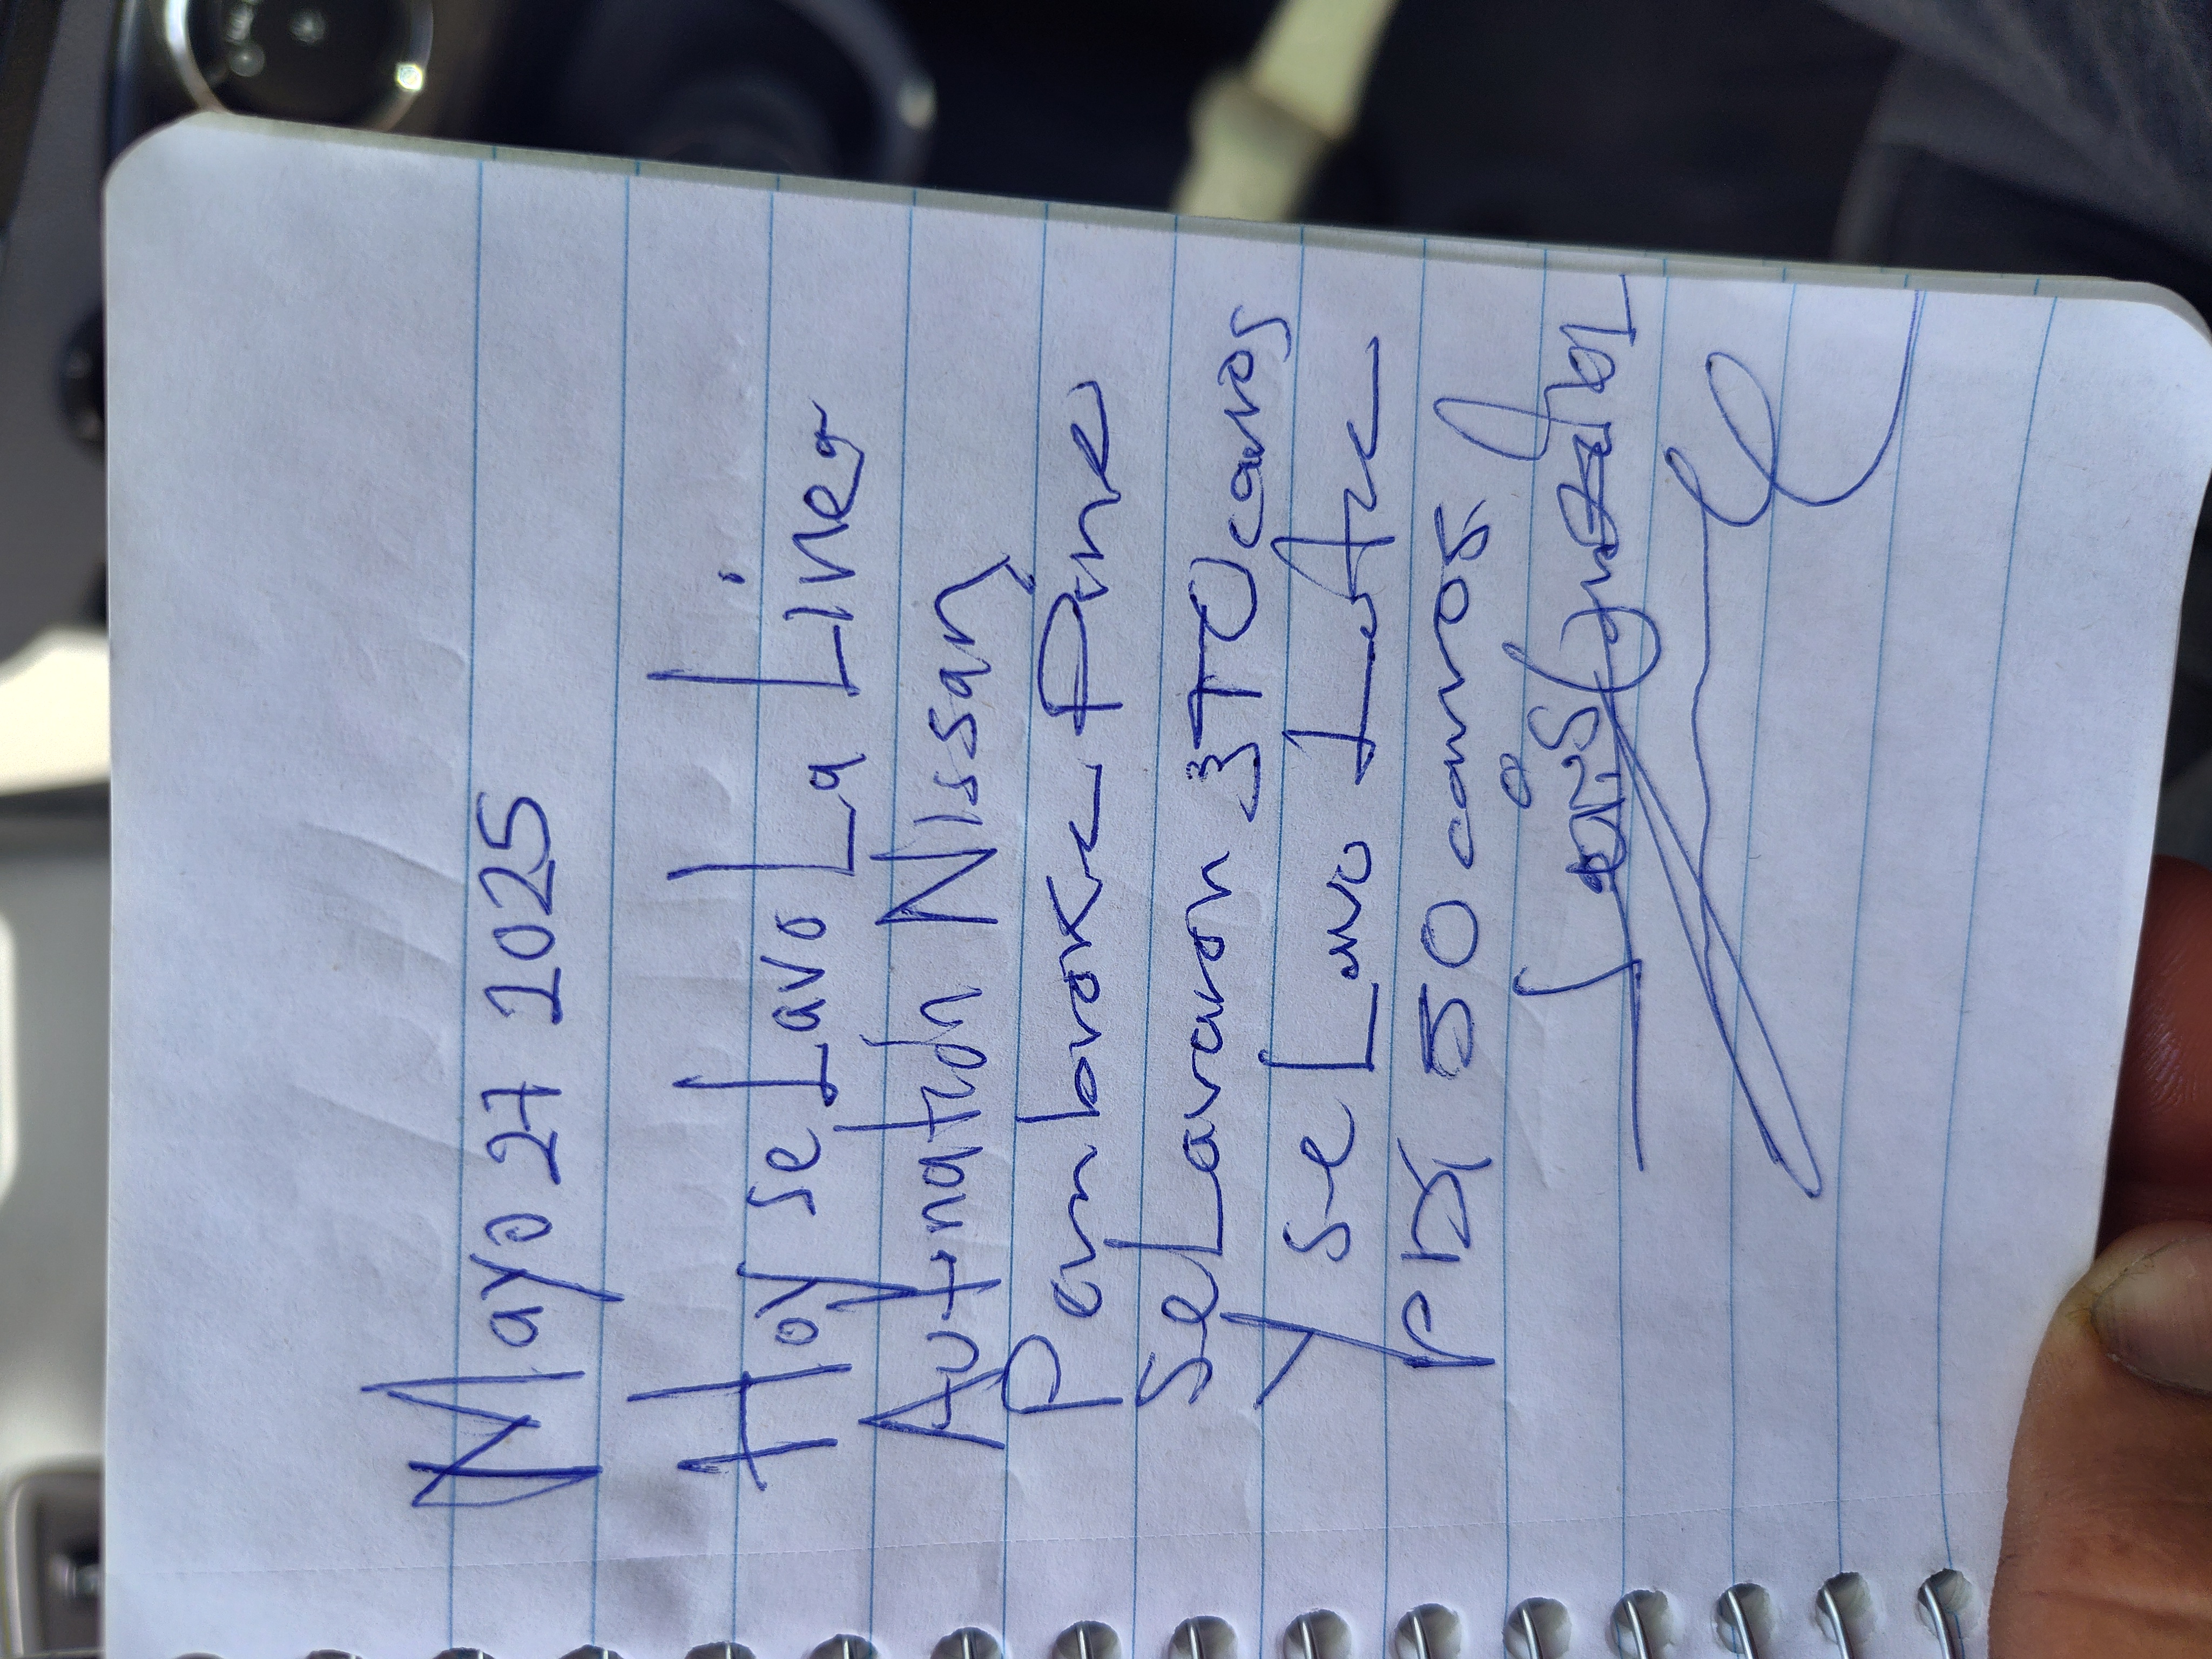 Mayo 27 2025
Hoy se Lavo La Linea
Autnation Nissan
Pembroke Pine
se Lavaron 370 carros
y se Lavo Lote
PDI 50 carros